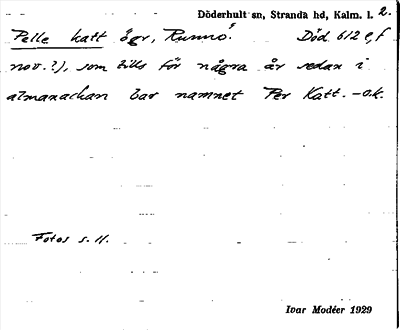 Döderhult sn, Stranda hd, Kalm. l. 2.
Pelle katt ägr, Runnö. Död 6/2 ef
nov. ?), som tills för några år sedan i
almanackan bar namnet Per Katt. – o.k.
Fotos s. 11.
Ivar Modéer 1929